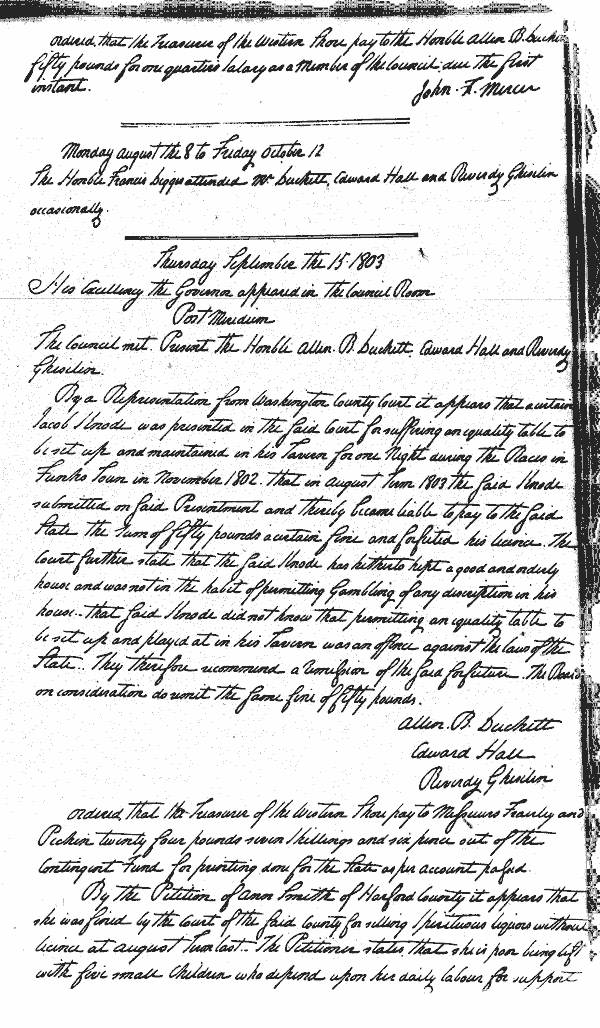 ordered that the Treasurer of the Western Shore pay to the Honble Allen B. Duckett
fifty pounds for one quarters Salary as a Member of the Council due the first
instant.
John F. Mercer
Monday August the 8 to Friday October 12
The Honble Francis Digges attended Mr. Duckett, Edward Hall and Reverdy Ghiselin
occasionally.
Thursday September the 15. 1803
His Excellency the Governor appeared in the Council Room
Post Meredium
The Council met. Present the Honble Allen. B. Duckett, Edward Hall and Reverdy
Ghiselin.
By a Representation from Washington County Court it appears that a certain
Jacob Knode was presented in the said Court for suffering an equality table to
be set up and maintained in his Tavern for one Night during the Races in
Funks Town in November 1802. that in August Term 1803 the said Knode
submitted on said Presentment and thereby became liable to pay to the said
State the sum of fifty pounds a certain fine and forfeited his licence. The
Court further state that the said Knode has hitherto kept a good and orderly
house and was not in the habit of permitting Gambling of any discription in his
house. that said Knode did not know that permitting an equality table to
be set up and played at in his Tavern was an offence against the laws of the
State.. They therefore recommend a remission of the said forfeiture. The Board
on consideration do remit the same fine of fifty pounds.
Allen. B. Duckett
Edward Hall
Reverdy Ghiselin
ordered that the Treasurer of the Western Shore pay to Messieurs Frailey and
twenty four pounds seven Shillings and six pence out of the
Contingent Fund for printing done for the State as per account passed.
By the Petition of Ann Smith of Harford County it appears that
she was fined by the Court of the said County for selling Spirituous liquors without
licence at August Term last.. The Petitioner states that she is poor being left
with five small Children who depend upon her daily labour for support